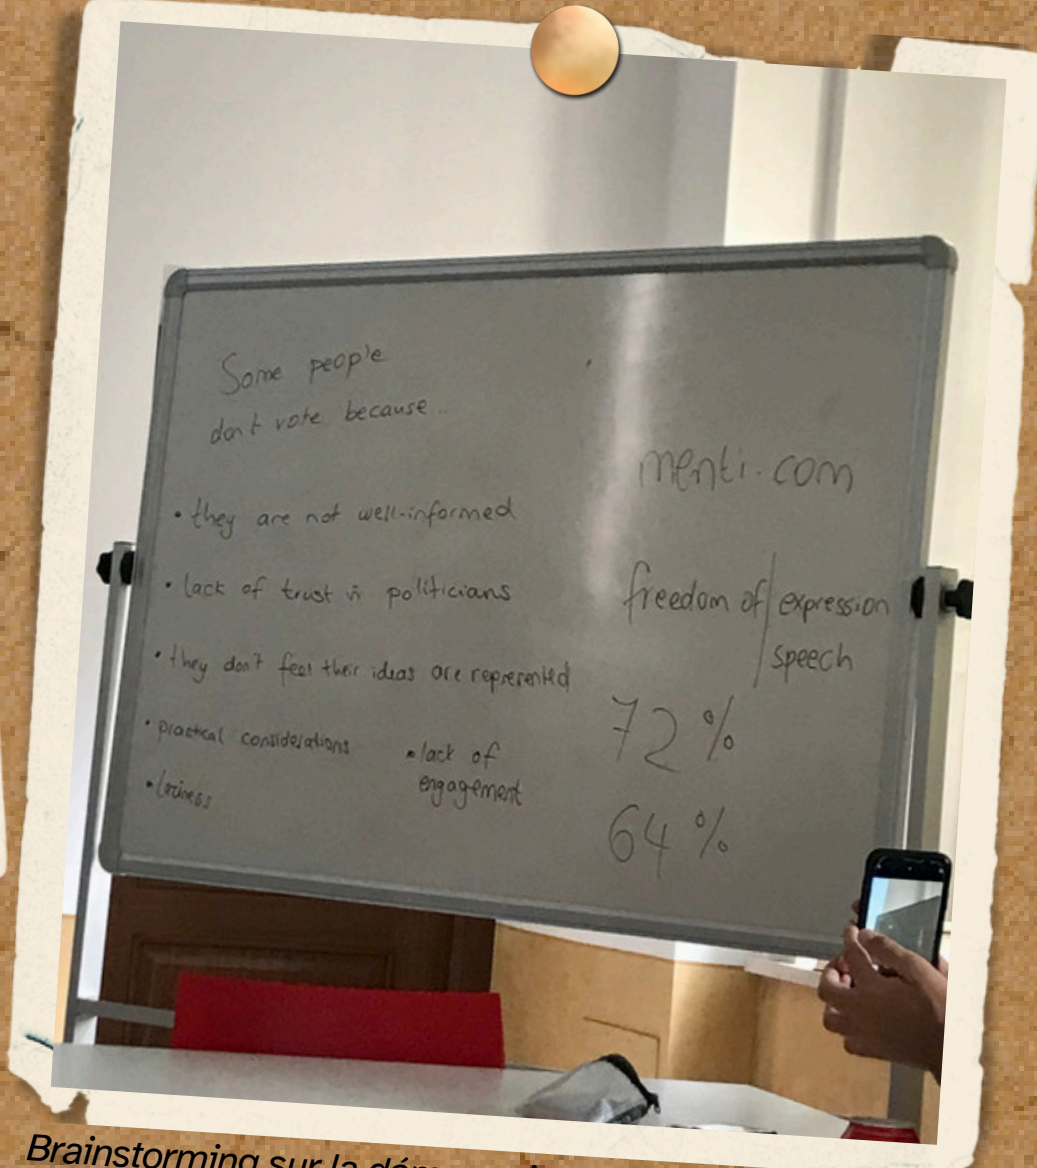 Some people
don't vote because...
• they are not well-informed
• lack of trust in politicians
• they don't feel their ideas are represented
• practical considerations
• laziness
• lack of
engagement
menti.com
freedom of/expression
speech
72%
64%
Brainstorming sur la